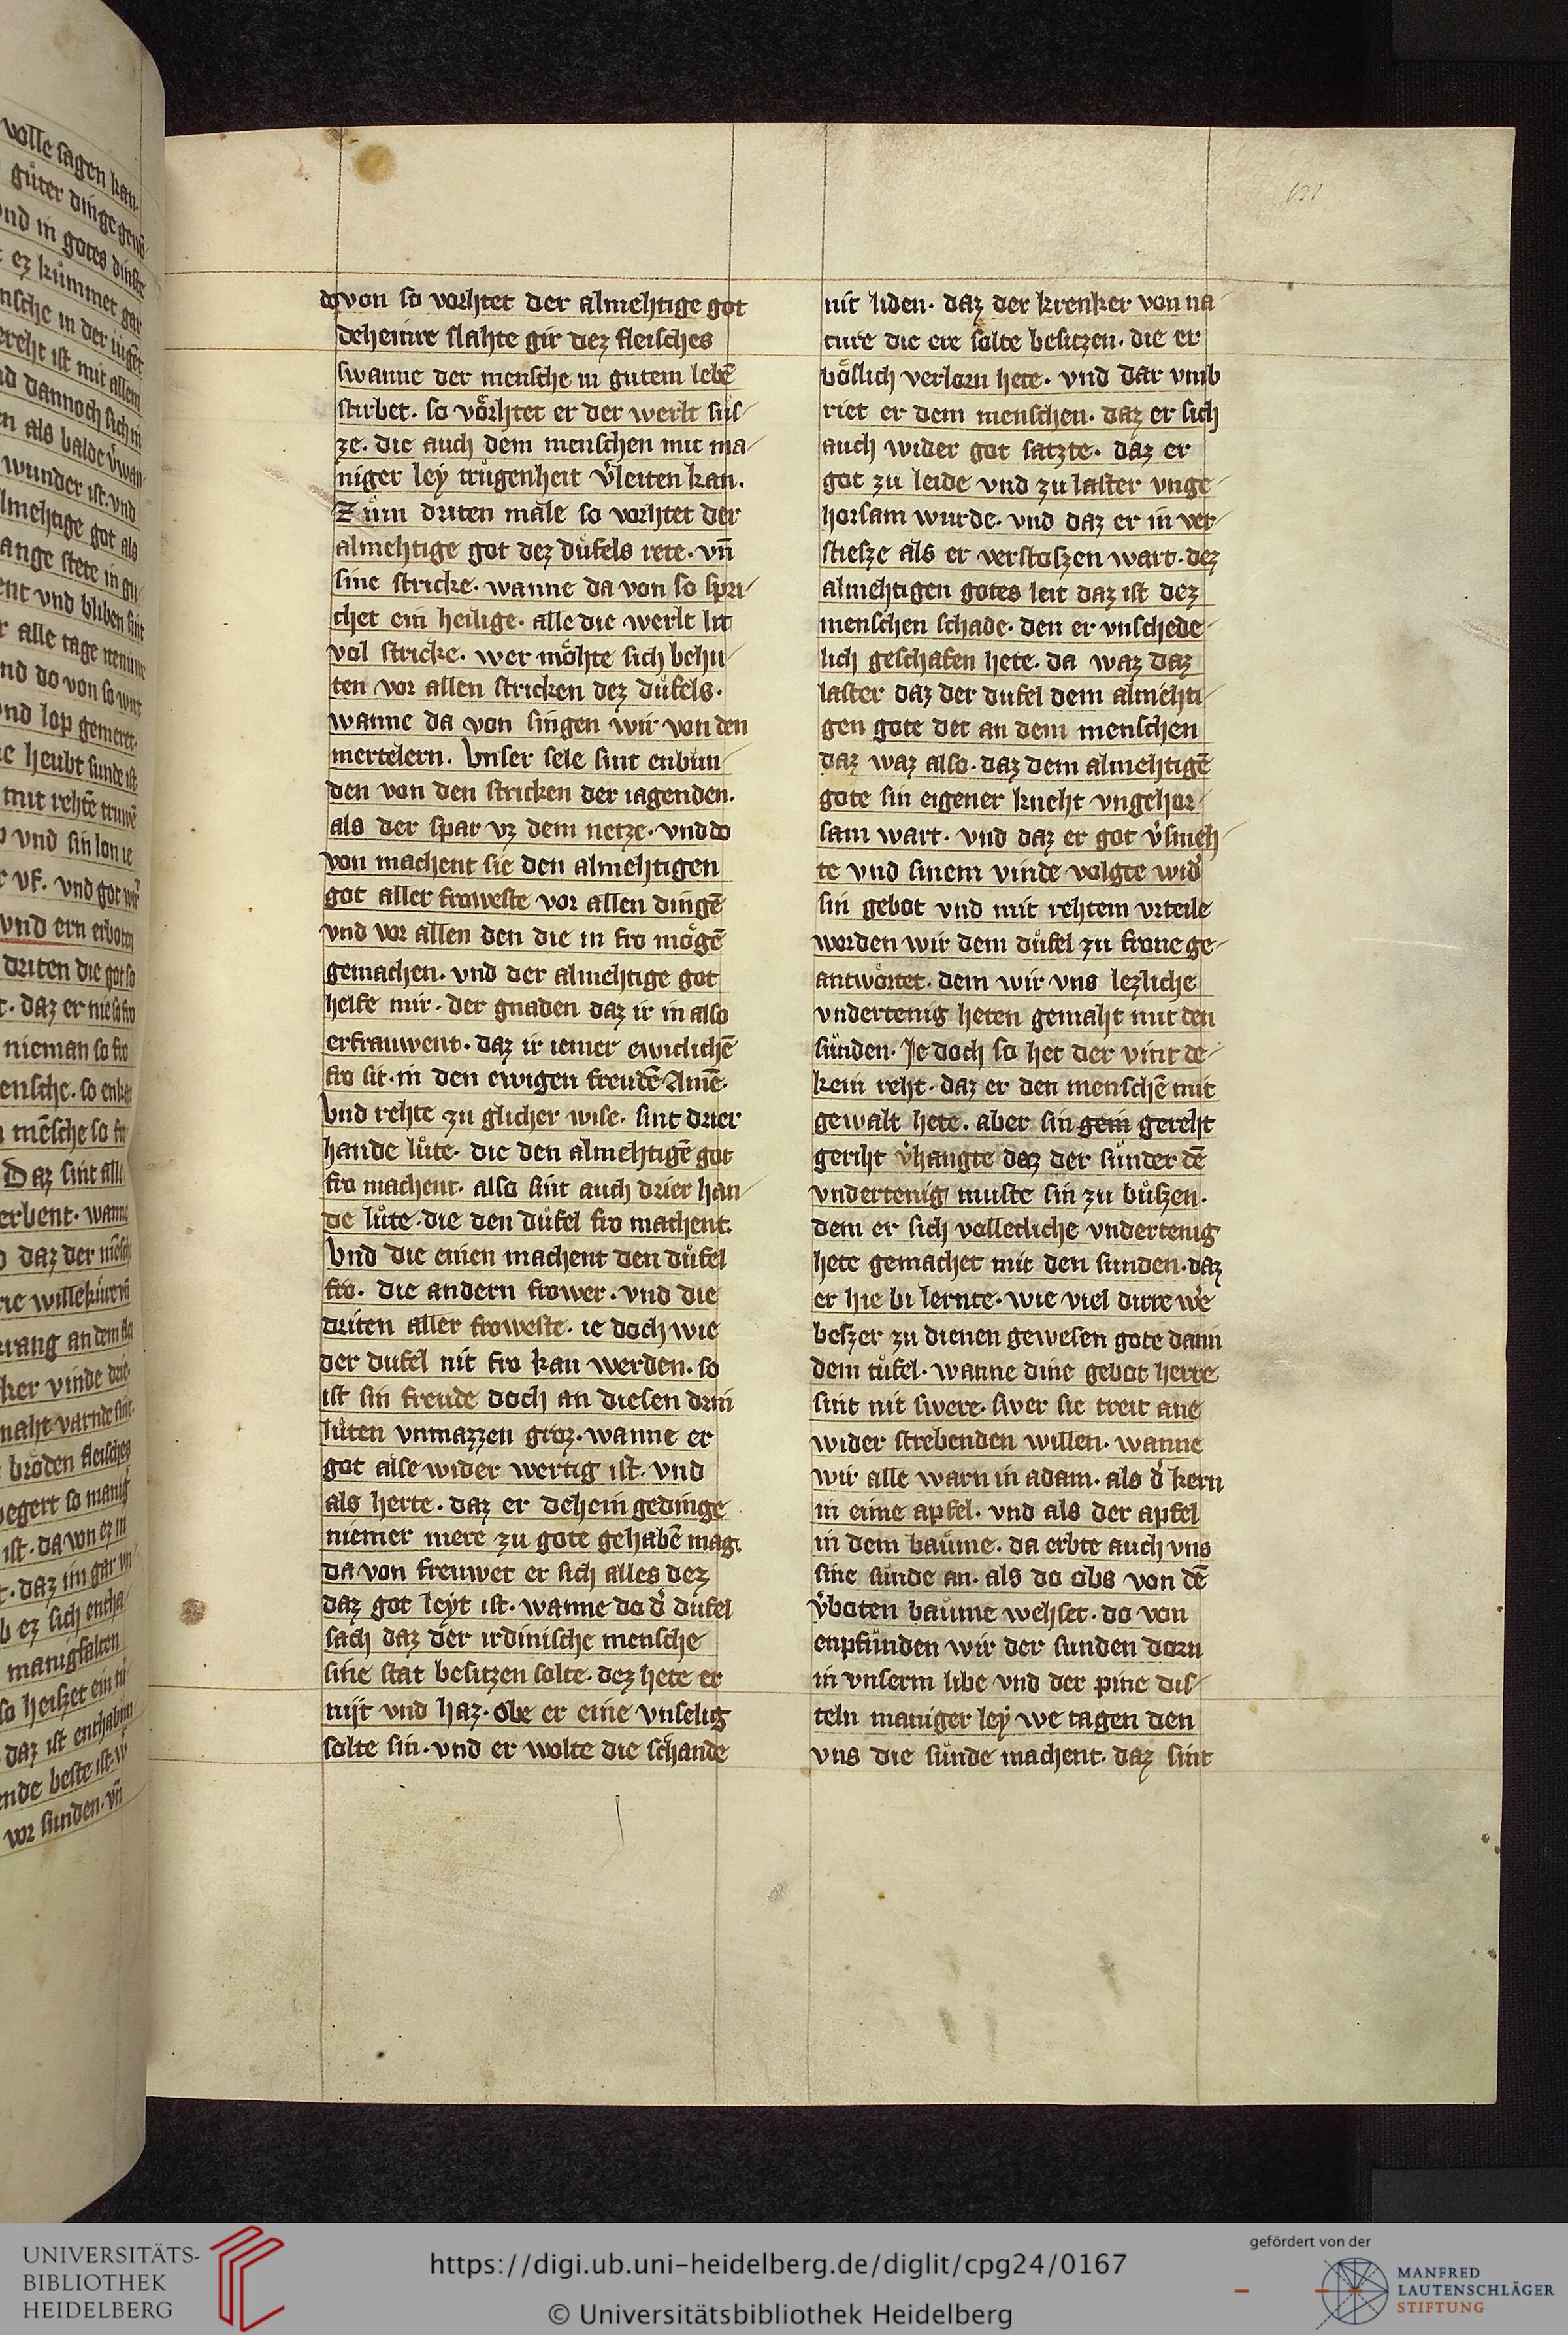 volle sagen kan.
guͤter dinge genuͦ
vnd in gotes dinste
ez kuͤmmet gar
nsche in der iugēt
ereht ist mit allem
nd dannoch sich in
en als balde v̓wan
wunder ist. vnd
almehtige got als
ange stete in gu
ent vnd bliben sint
r alle tage nemme
nd do von so wirt
vnd lop gemeret.
ne heubt sunde ist
mit rehtē truwē
o vnd sin lon ie
r vf. vnd got wir
vnd ern erboten
driten die got so
t. daz er nie so fro
nieman so fro
ensche. so enkan
n mēsche so fro
Daz sint alle
erbent. wanne
o daz der mēsche
rie willekuͤre vñ
trang an dem flei
ker vinde drie
maht varnde sint.
broͤden fleisches
begert so manig
ist. da von ez in
t. daz im gar vn
b ez sich entha
manigfalten
so heiszet ein tu
daz ist enthabun
ende beste ist. w
vor sunden. vñ
do von so vorhtet der almehtige got
deheinre slahte gir dez fleisches
swanne der mensche in gutem lebē
stirbet. so voͤrhtet er der werlt suͤs-
ze. die auch dem menschen mit ma-
niger ley truͤgenheit v̓leiten kan.
Zuͦm driten male so vorhtet der
almehtige got dez duͤfels rete. vñ
sine stricke. wanne da von so spri-
chet ein heilige. alle die werlt lit
vol stricke. wer moͤhte sich behu-
ten vor allen stricken dez duͤfels.
wanne da von singen wir von den
mertelern. Vnser sele sint enbun-
den von den stricken der iagenden.
als der spar vz dem netze. vnd do
von machent sie den almehtigen
got aller froweste vor allen dingē
vnd vor allen den die in fro moͤgē
gemachen. vnd der almehtige got
helfe mir. der gnaden daz ir in also
erfrauwent. daz ir iemer ewiclichē
fro sit. in den ewigen freudē Amē.
Vnd rehte zu glicher wise. sint drier
hande luͤte. die den almehtigē got
fro machent. also sint auch drier han-
de luͤte. die den duͤfel fro machent.
Vnd die einen machent den duͤfel
fro. die andern frower. vnd die
driten aller froweste. ie doch wie
der dufel nit fro kan werden. so
ist sin freude doch an diesen drin
luͤten vnmazzen groz. wanne er
got alse wider wertig ist. vnd
als herte. daz er dehein gedinge
niemer mere zu gote gehabē mag.
da von freuwet er sich alles dez
daz got leyt ist. wanne do d̓ duͤfel
sach daz der irdinische mensche
sine stat besitzen solte. dez hete er
nijt vnd haz. obe er eine vnselig
solte sin. vnd er wolte die schande
nit liden. daz der krenker von na-
ture die ere solte besitzen. die er
boͤslich verlorn hete. vnd dar vmb
riet er dem menschen. daz er sich
auch wider got satzte. daz er
got zu leide vnd zu laster vnge-
horsam wurde. vnd daz er in ver-
stiesze als er verstoszen wart. dez
almehtigen gotes leit daz ist dez
menschen schade. den er vnschede-
lich geschafen hete. da waz daz
laster daz der dufel dem almehti-
gen gote det an dem menschen
daz waz also. daz dem almehtigē
gote sin eigener kneht vngehor-
sam wart. vnd daz er got v̓smeh-
te vnd sinem vinde volgte wid̓
sin gebot vnd mit rehtem vrteile
worden wir dem duͤfel zu frone ge-
antwoͤrtet. dem wir vns lezliche
vndertenig heten gemaht mit den
suͤnden. Je doch so het der vint de-
kein reht. daz er den menschē mit
gewalt hete. aber sin gein gereht
geriht v̓hangte daz der suͤnder dē
vndertenig muste sin zu buͤszen.
dem er sich volletliche vndertenig
hete gemachet mit den sunden. daz
er hie bi lernte. wie viel dirre we̓
beszer zu dienen gewesen gote dann
dem tuͤfel. wanne dine gebot herre
sint nit swere. swer sie treit ane
wider strebenden willen. wanne
wir alle warn in adam. als d̓ kern
in eime apfel. vnd als der apfel
in dem bauͤme. da erbte auch vns
sine suͤnde an. als do obs von dē
v̓boten bauͤme wehset. do von
enpfuͤnden wir der sunden dorn
in vnserm libe vnd der pine dis-
teln maniger ley we tagen den
vns die suͤnde machent. daz sint
UNIVERSITÄTS-
BIBLIOTHEK
HEIDELBERG
https://digi.ub.uni-heidelberg.de/diglit/cpg24/0167
© Universitätsbibliothek Heidelberg
gefördert von der
MANFRED
LAUTENSCHLÄGER
STIFTUNG